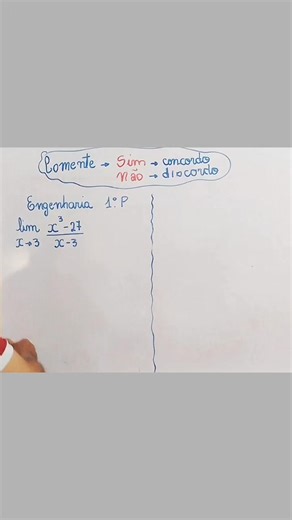 Comente → Sim → concordo
Não → discordo
Engenharia 1º P
lim x³-27
x→3 x-3